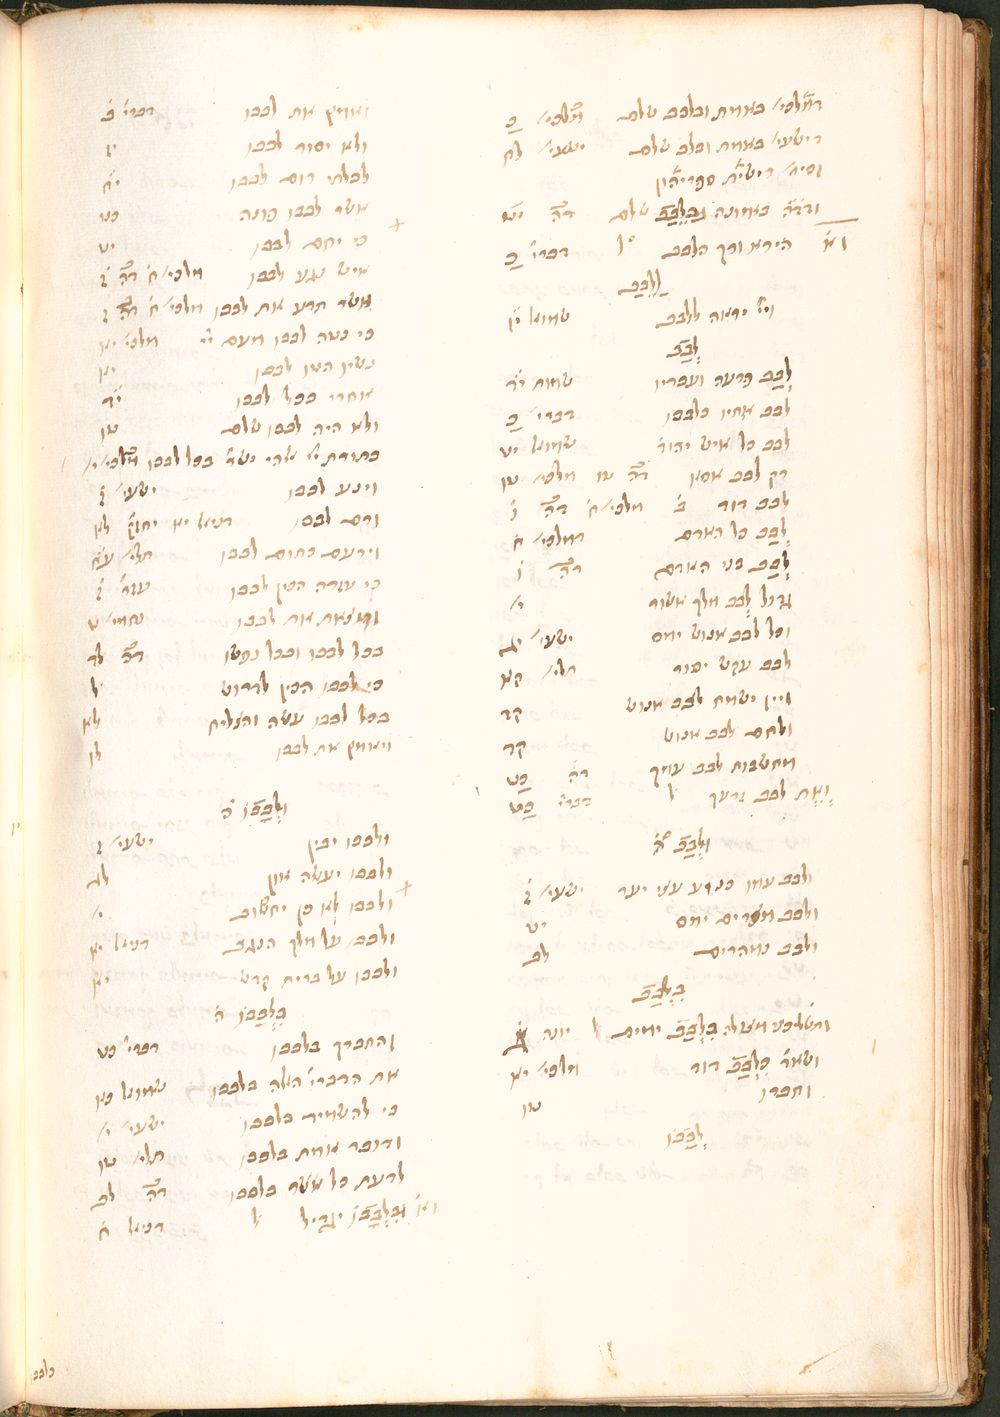 דמלכי׳ באמת ובלבב שלם מלכי׳ כ
דישעי׳ באמת ובלב שלם ישעי׳ לח
וסי׳ דישי״ת ספריהון
ודד״ה באמונה ובלבב שלם ד״ה יט
וא׳ הירא ורך הלבב ל׳ דברי׳ כ
ללבב
וי״י יראה ללבב שמוא׳ יו
לבב
לבב פרעה ועבדיו שמות יד
לבב אחיו כלבבו דברי׳ כ
לבב כל איש יהוד׳ שמוא׳ יט
רק לבב אסא ד״ה טו מלכי׳ טו
לבב דוד ב׳ מלכי׳ ח׳ ד״ה ו׳
לבב כל האדם דמלכי׳ ח
לבב בני האדם ד״ה ו
גדל לבב מלך אשור י׳
וכל לבב אנוש ימס ישעי׳ יג
לבב עקש יסור תלי׳ קא
ויין ישמח לבב אנוש קד
ולחם לבב אנוש קד
מחשבות לבב עמך ד״ה כט
ואת לבב זרעך ל׳ דברי׳ כט
ולבב ה׳
ולבב עמו כנוע עצי יער ישעי׳ ז׳
ולבב מצרים ימס יט
ולבב נמהרים לב
בלבב
ותשליכני מצולה בלבב ימים ל׳ יונה
ושאר׳ כלבב דוד מלכי׳ יא
וחברו טו
לבבו
ואמץ את לבבו דברי׳ ב׳
ולא יסור לבבו יז
לבלתי רום לבבו יז
אשר לבבו פונה כט
כי יחם לבבו יט
איש נגע לבבו מלכי׳ ח׳ ד״ה ו׳
אשר תדע את לבבו מלכי׳ ח׳ ד״ה ו׳
כי נטה לבבו מעם י״י מלכי׳ יא
נשיו הטו לבבו יא
אחרי בכל לבבו יד
ולא היה לבבו שלם טו
בתורת י״י אלהי ישר׳ בכל לבבו מלכי׳ י׳
וינע לבבו ישעי׳ ז׳
ורם לבבו דניאל יא
וירעם כחום לבבו תלי׳ עח
כי עזרא הכין לבבו עזר׳ ז׳
ומצאת את לבבו נחמי׳ ט
בכל לבבו ובכל נפשו ד״ה לד
כי לבבו הכין לדרוש ל׳
בכל לבבו עשה והצליח לא
ויאמץ את לבבו לו
ולבבו ה׳
ולבבו יבין ישעי׳ ו׳
ולבבו יעשה און לב
ולבבו לא כן יחשוב י׳
ולבבו על מלך הנגב דניאל יא
ולבבו על ברית קדש יא
בלבבו ה׳
והתברך בלבבו דברי׳ כט
את הדברי׳ האלה בלבבו שמוא׳ כא
כי להשמיד בלבבו ישעי׳ י׳
ודובר אמת בלבבו תלי׳ טו
לדעת כל אשר בלבבו ד״ה לב
וא׳ ובלבבו יגדיל ל׳ דניאל ח
בלבבו